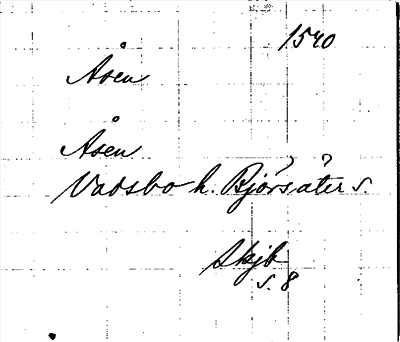 1540
Åsen
Åsen
Vadsbo h. Bjørsäter s.
Skjb
s. 8